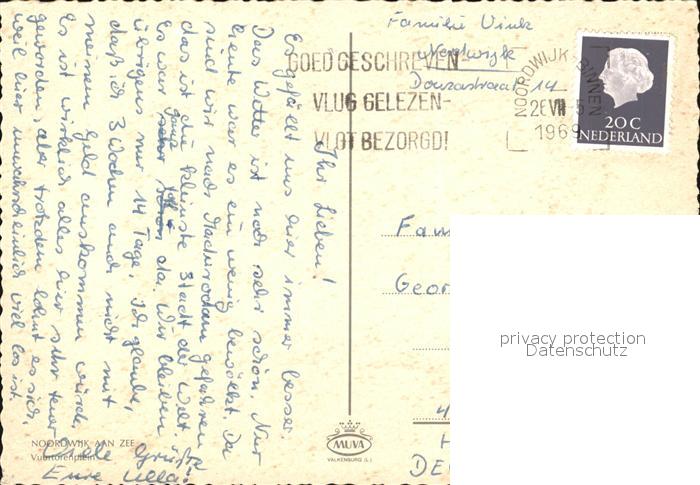 Ihr Lieben!
Es gefällt uns hier immer besser
Das Wetter ist noch sehr schön. Nur
heute war es ein wenig bewölkt. Da
sind wir nach Madurodam gefahren
das ist die kleinste Stadt der Welt.
Es war ganz toll da. Wir bleiben
übrigens nur 14 Tage. Ich glaube,
daß ich 3 Wochen auch nicht mit
meinem Geld auskommen würde.
Es ist wirklich alles hier sehr teuer
geworden, aber trotzdem lohnt es sich,
weil hier unwahrscheinlich viel los ist.
Viele Grüße
Eure Ulla!
NOORDWIJK AAN ZEE
Vuurtorenplein
Familie Vink
Noordwijk
Douzastraat 14
GOED GESCHREVEN-
VLUG GELEZEN-
VLOT BEZORGD!
NOORDWIJK-BINNEN
26 VII -5
1969
20 C
NEDERLAND
Fam
Geor
4
H
DE
MUVA
VALKENBURG (L.)
privacy protection
Datenschutz